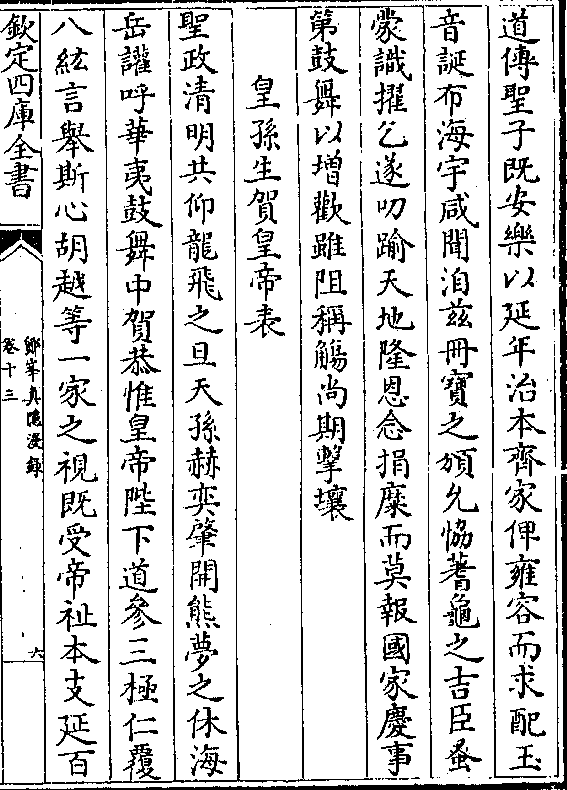 道傳聖子既安樂以延年治本齊家俾雍容而求配玉
音誕布海宇咸聞洎兹冊寶之頒允恊蓍龜之吉臣蚤
蒙識擢乞遂叨踰天地隆恩念捐糜而莫報國家慶事
第鼓舞以增歡雖阻稱觴尚期擊壤
皇孫生賀皇帝表
聖政清明共仰龍飛之旦天孫赫奕肇開熊夢之休海
岳讙呼華夷鼓舞中賀恭惟皇帝陛下道參三極仁覆
八紘言舉斯心胡越等一家之視既受帝祉本支延百
欽定四庫全書
鄮峯真隱漫録
卷十三
六